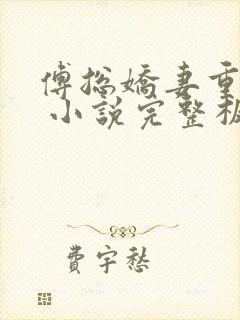 傅總嬌妻重
小說完整板
費宇愁